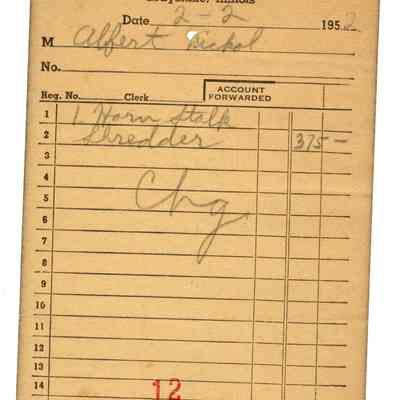 Illinois
Date 2-2 1952
M Albert Nickel
No.
Reg. No. Clerk ACCOUNT FORWARDED
1 1 Horn Stalk
2 Shredder 375 —
3
4 Chg
5
6
7
8
9
10
11
12
13
14 12